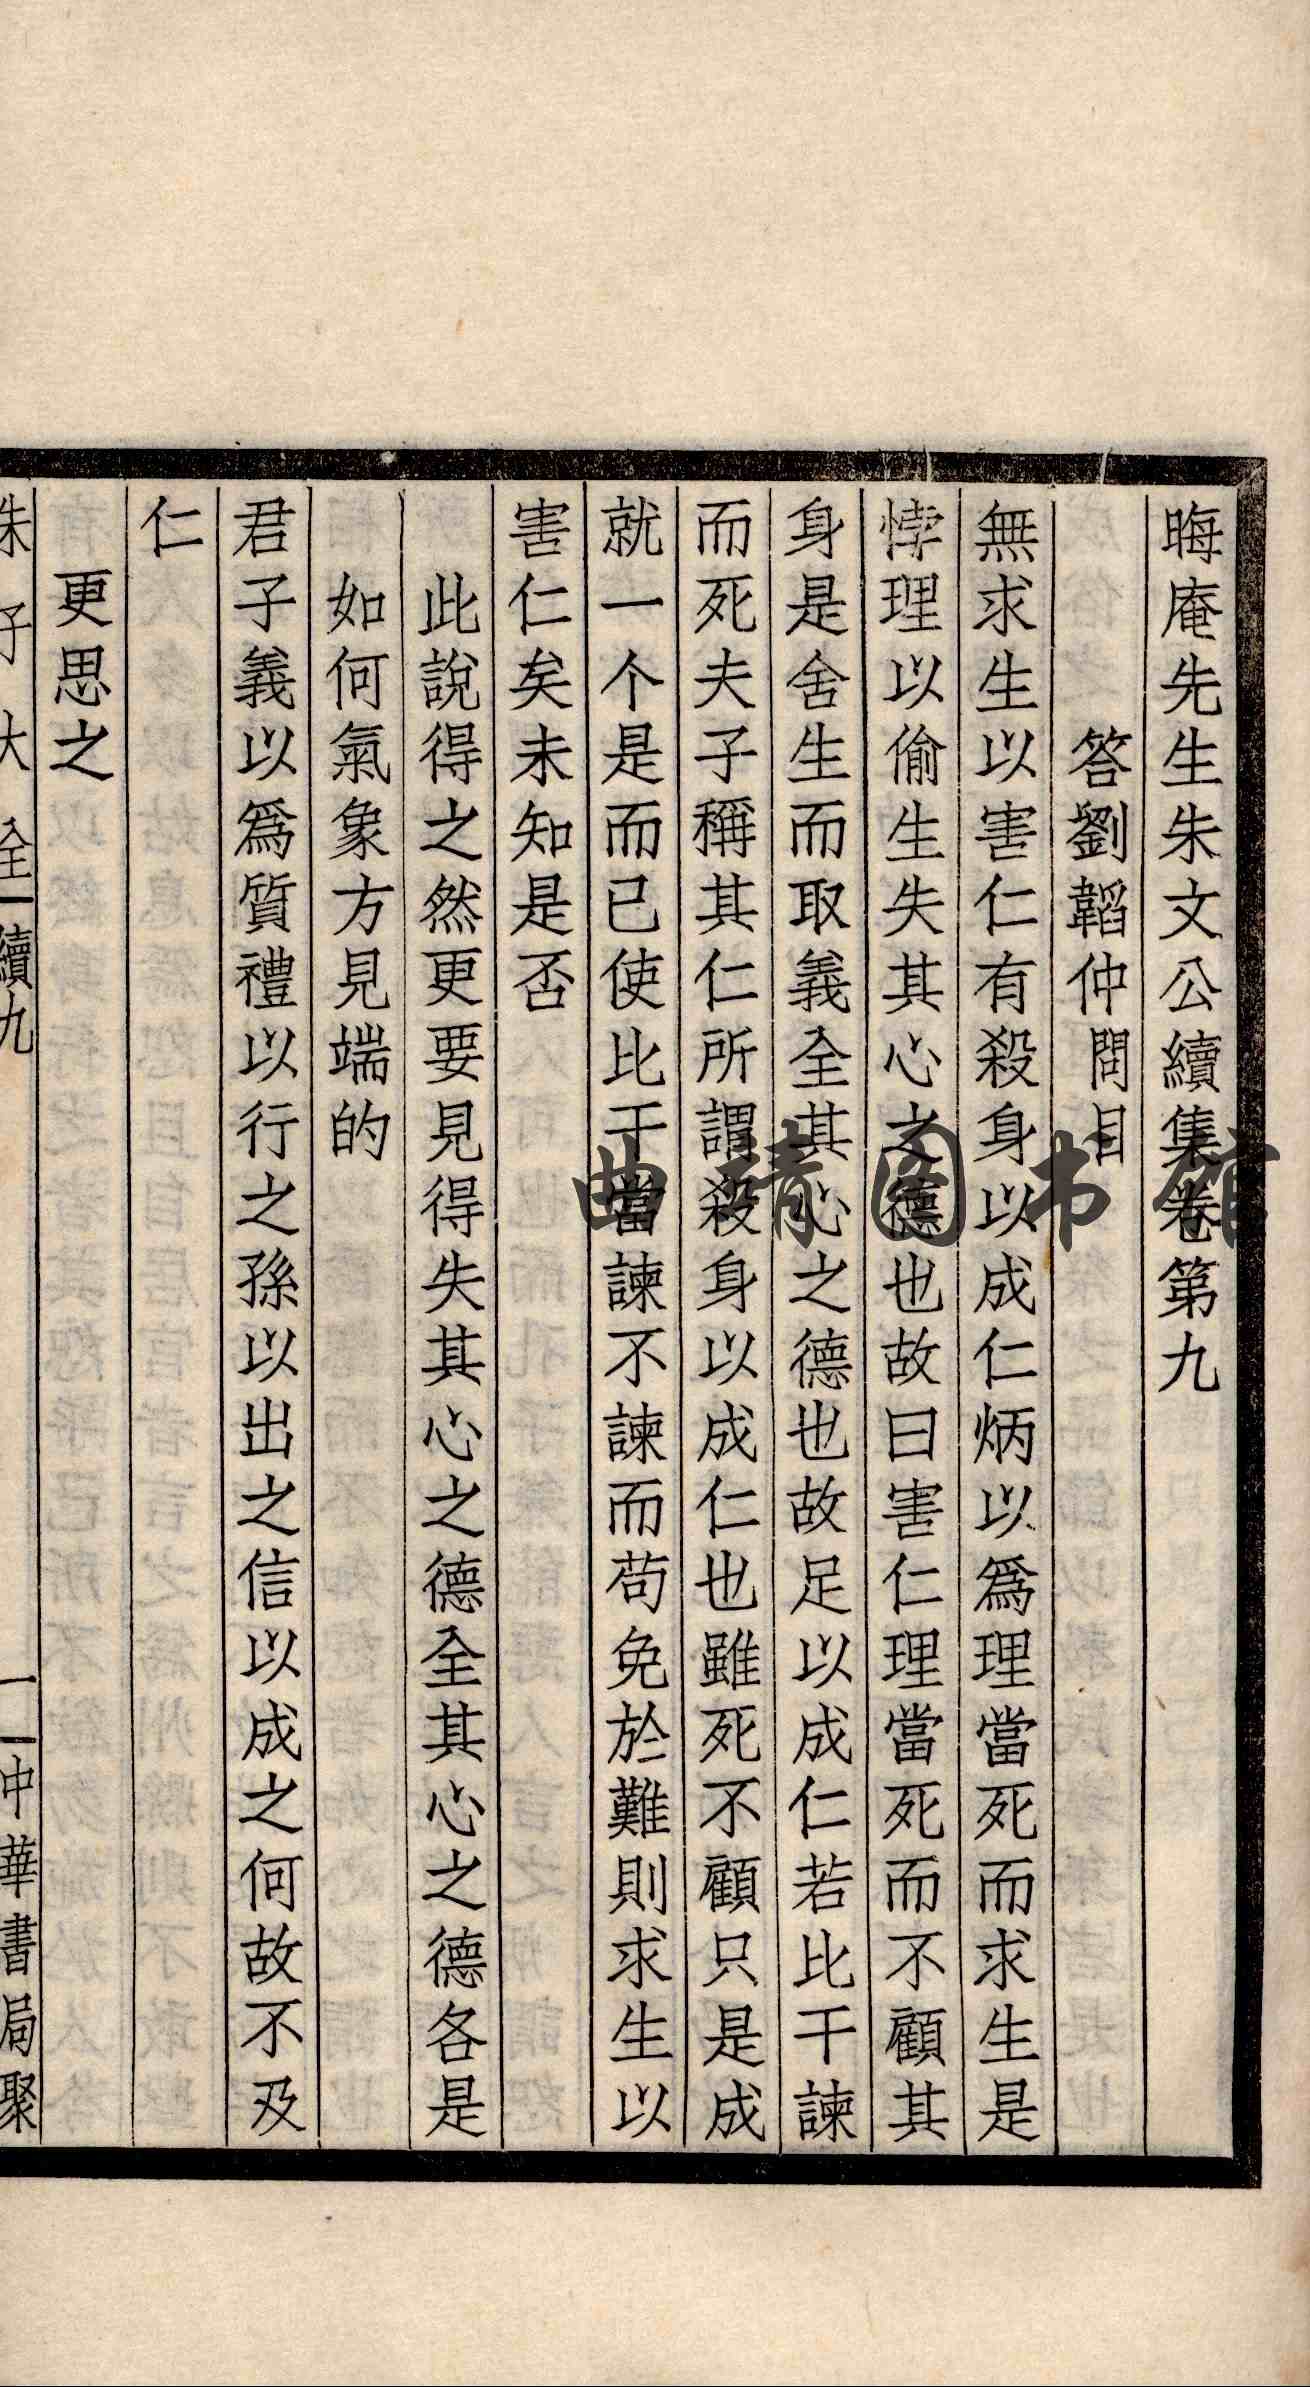 晦庵先生朱文公續集卷第九
答劉韜仲問目
無求生以害仁有殺身以成仁炳以爲理當死而求生是
悖理以偷生失其心之德也故曰害仁理當死而不顧其
身是舍生而取義全其心之德也故足以成仁若比干諫
而死夫子稱其仁所謂殺身以成仁也雖死不顧只是成
就一个是而已使比干當諫不諫而苟免於難則求生以
害仁矣未知是否
此說得之然更要見得失其心之德全其心之德各是
如何氣象方見端的
君子義以爲質禮以行之孫以出之信以成之何故不及
仁
更思之
朱子大全 續九 一 中華書局聚
曲靖图书馆